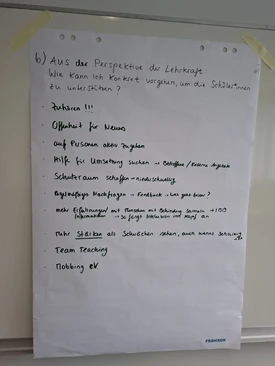 b) Aus der Perspektive der Lehrkraft:
Wie kann ich konkret vorgehen, um die Schüler*innen
zu unterstützen?
- Zuhören !!!
- Offenheit für Neues
- auf Personen aktiv zugehen
- Hilfe für Umsetzung suchen → Betroffene / Externe
- Schutzraum schaffen → niederschwellig
- Nachfragen → Feedback: was gut
- mehr Erfahrungen mit Menschen mit Behinderung sammeln
Informationen → so fängt Inklusion im Kopf an
- Mehr Stärken als Schwächen sehen, auch wenns schwierig
- Team Teaching
- Mobbing eV
FRANKEN